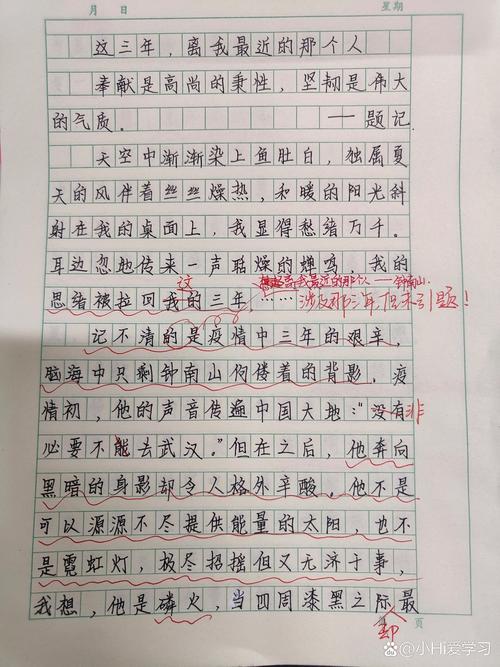 月 日 星期
这三年，离我最近的那个人
奉献是高尚的秉性，坚韧是伟大
的气质。 ——题记
天空中渐渐染上鱼肚白，独属夏
天的风伴着丝丝燥热，和暖的阳光斜
射在我的桌面上，我显得愁绪万千。
耳边忽地传来一声聒燥的蝉鸣，我的
这 离我最近的那个人——钟南山.
思绪被拉回我的三年，…… 涉及那三年,但未引题！
记不清的是疫情中三年的艰辛，
脑海中只剩钟南山佝偻着的背影，疫
情初，他的声音传遍中国大地：“没有非
必要不能去武汉。”但在之后，他奔向
黑暗的身影却令人格外辛酸。他不是
可以源源不尽提供能量的太阳，也不
是霓虹灯，极尽招摇但又无济于事，
我想，他是磷火，当四周漆黑之际最
却
页
@小Hi爱学习